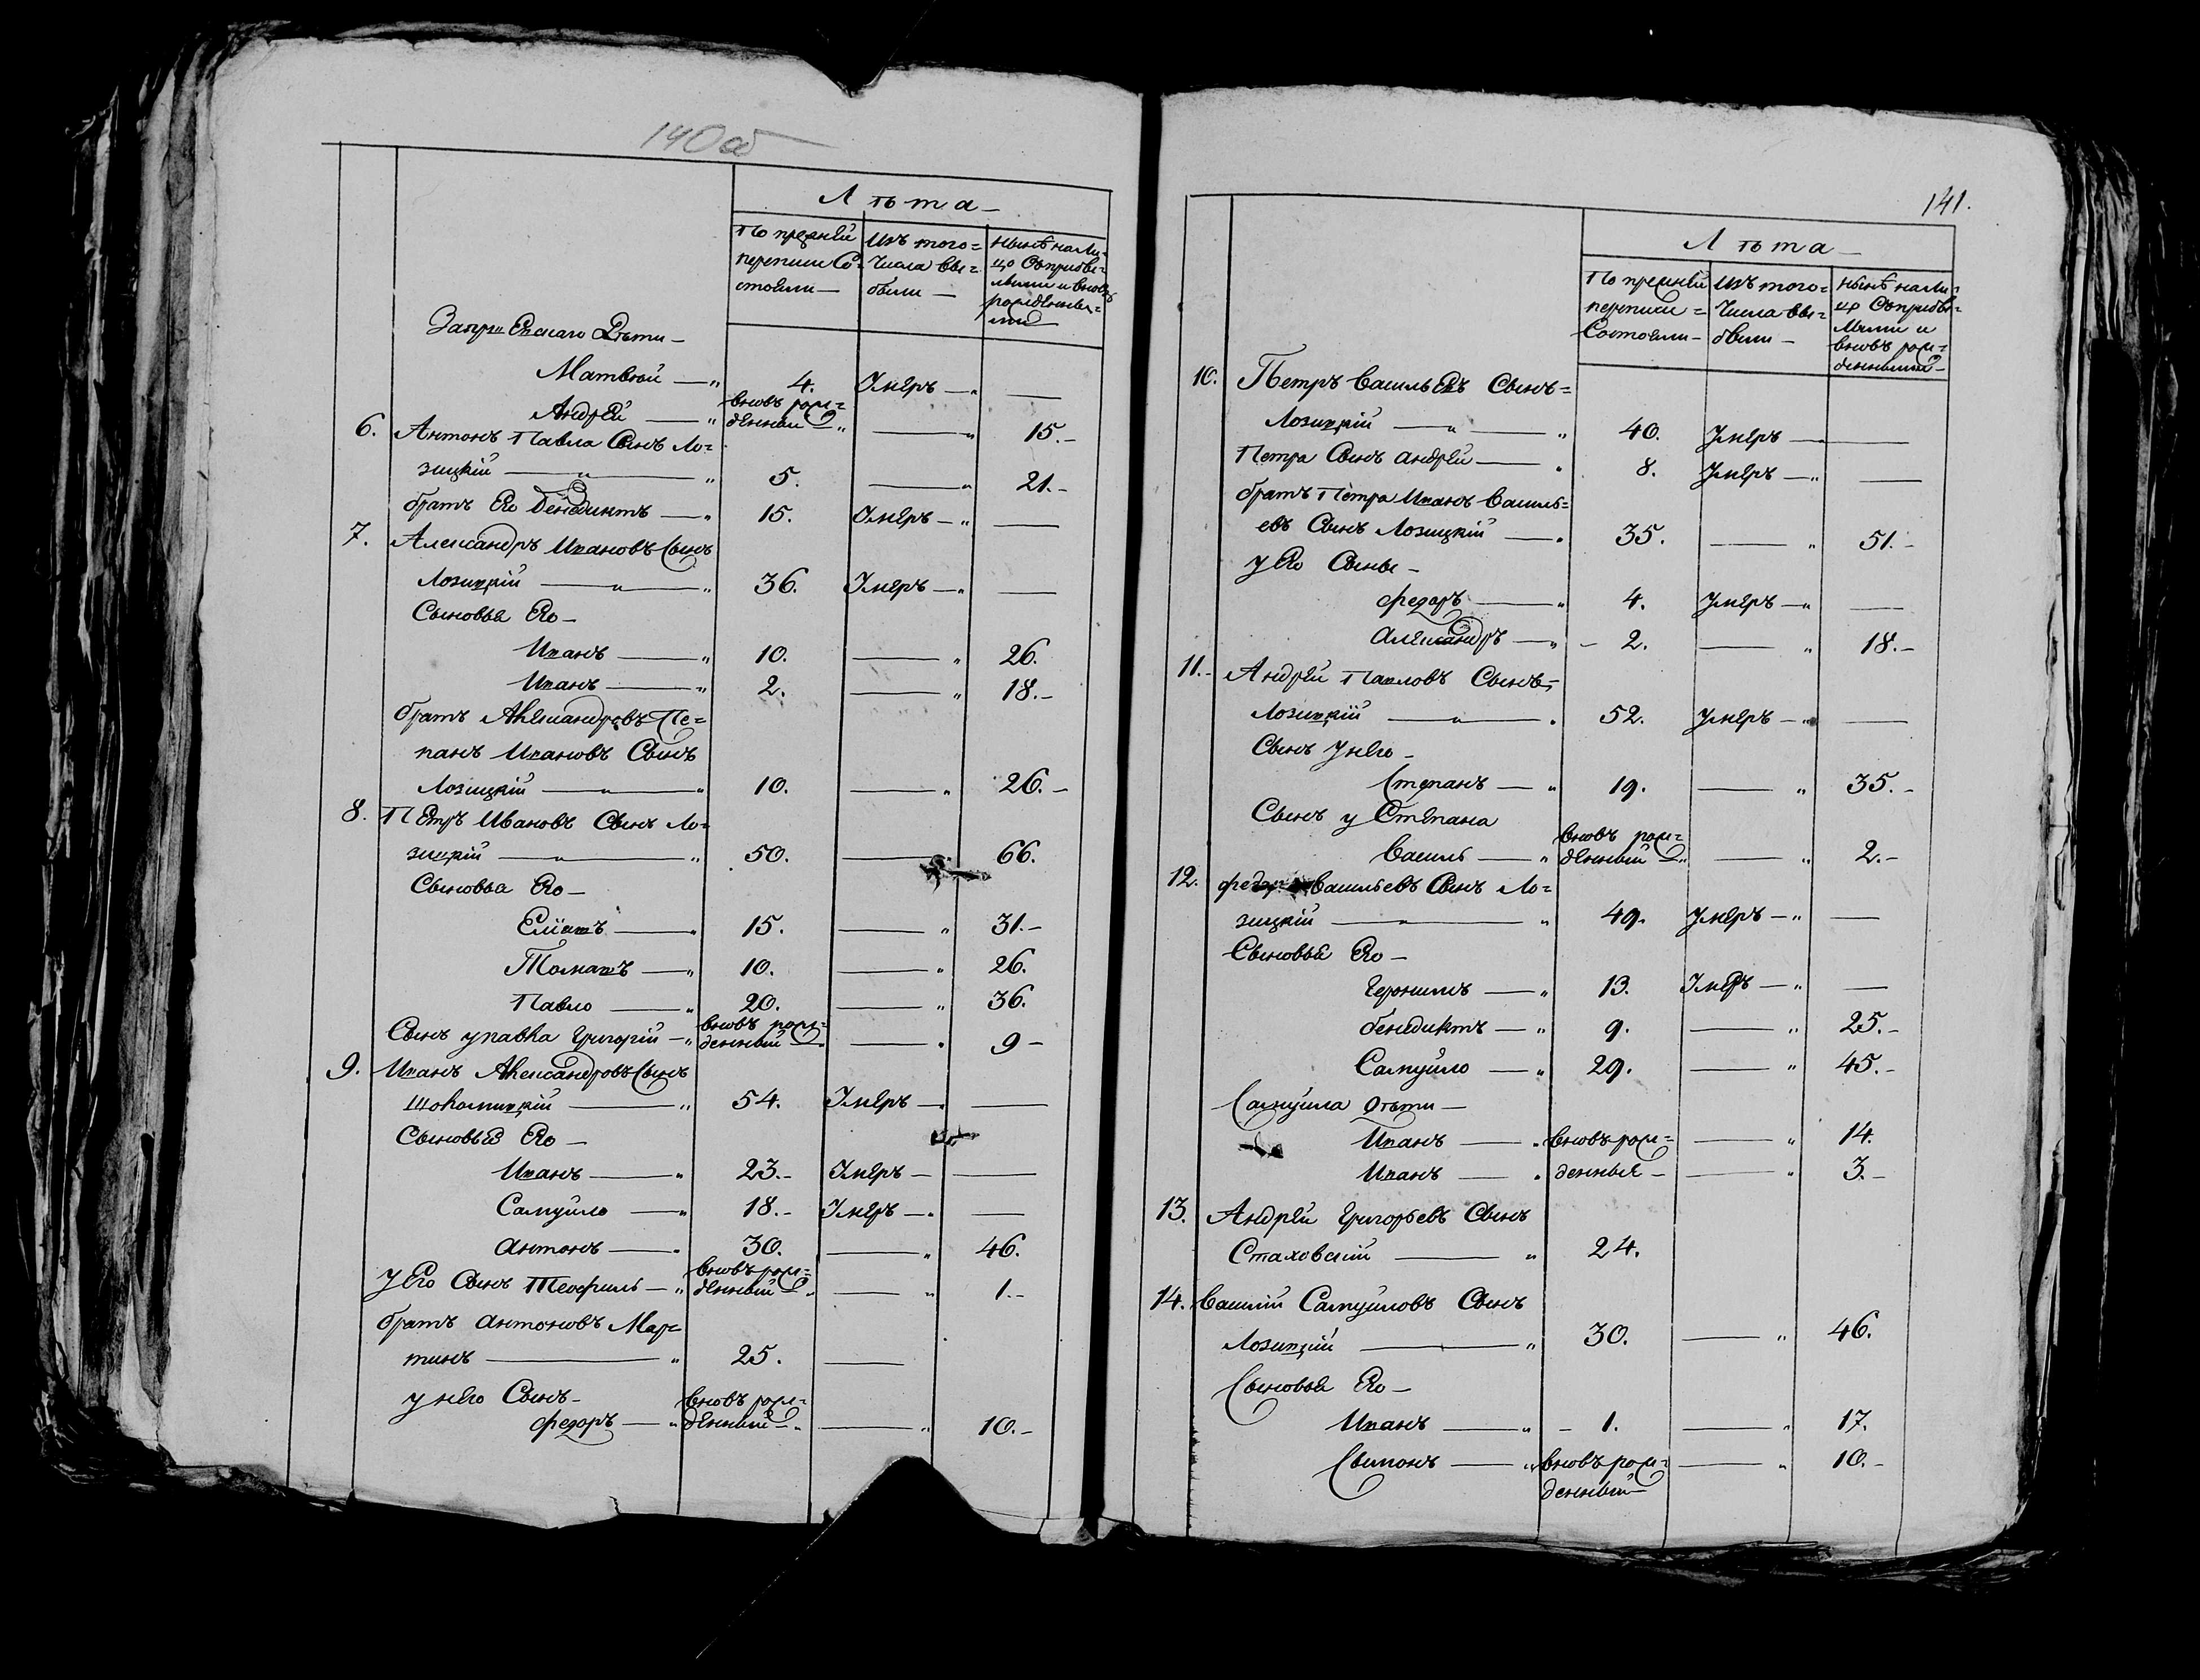 140об
Лѣта
По прежней | Изъ того= | Нынѣ нали=
переписи Со= | Числа вы= | цо Съприбы=
стояли | были | лыми и вновь
рожденны=
ми
Дѣти
Матвѣй 4. Умеръ
Андрей вновь рож=
денный 15.
6. Антонъ Павла Сынъ Ло=
зицкій 5. 21.
братъ Его Бенедиктъ 15. Умеръ
7. Александръ Ивановъ Сынъ
Лозицкій 36. Умеръ
Сыновья Его
Иванъ 10. 26.
Иванъ 2. 18.
братъ Александровъ Сте=
панъ Ивановъ Сынъ
Лозицкій 10. 26.
8. Петръ Ивановъ Сынъ Ло=
зицкій 50. 66.
Сыновья Его
15. 31.
Томашъ 10. 26.
Павло 20. 36.
Сынъ у павла Григорій вновь рож=
денный 9
9. Иванъ Александровъ Сынъ
54. Умеръ
Сыновья Его
Иванъ 23. Умеръ
Самуйло 18. Умеръ
Антонъ 30. 46.
у Его Сынъ Теофиль вновь рож=
денный 1.
братъ Антоновъ Мар=
тинъ 25.
у него Сынъ
федоръ вновь рож=
денный 10.
141.
Лѣта
По прежней | Изъ того= | Нынѣ нали=
переписи= | Числа вы= | цо Съприбы=
Состояли | были | лыми и
вновь рож=
денными
10. Петръ Васильевъ Сынъ=
Лозицкій 40. Умеръ
Петра Сынъ Андрей 8. Умеръ
братъ Петра Иванъ Василь=
евъ Сынъ Лозицкій 35. 51.
у Его Сыны
федоръ 4. Умеръ
Александръ 2. 18.
11. Андрей Павловъ Сынъ=
Лозицкій 52. Умеръ
Сынъ у него
Степанъ 19. 35.
Сынъ у Степана
Василь вновь рож=
денный 2.
12. федоръ Васильевъ Сынъ Ло=
зицкій 49. Умеръ
Сыновья Его
Геронимъ 13. Умеръ
бенедиктъ 9. 25.
Самуйло 29. 45.
Самуйла Дѣти
Иванъ вновь рож= 14.
Иванъ денныя 3.
13. Андрей Григорьевъ Сынъ
Стаховскій 24.
14. Василій Самуйловъ Сынъ
Лозицкій 30. 46.
Сыновья Его
Иванъ 1. 17.
Сымонъ вновь рож= 10.
денный